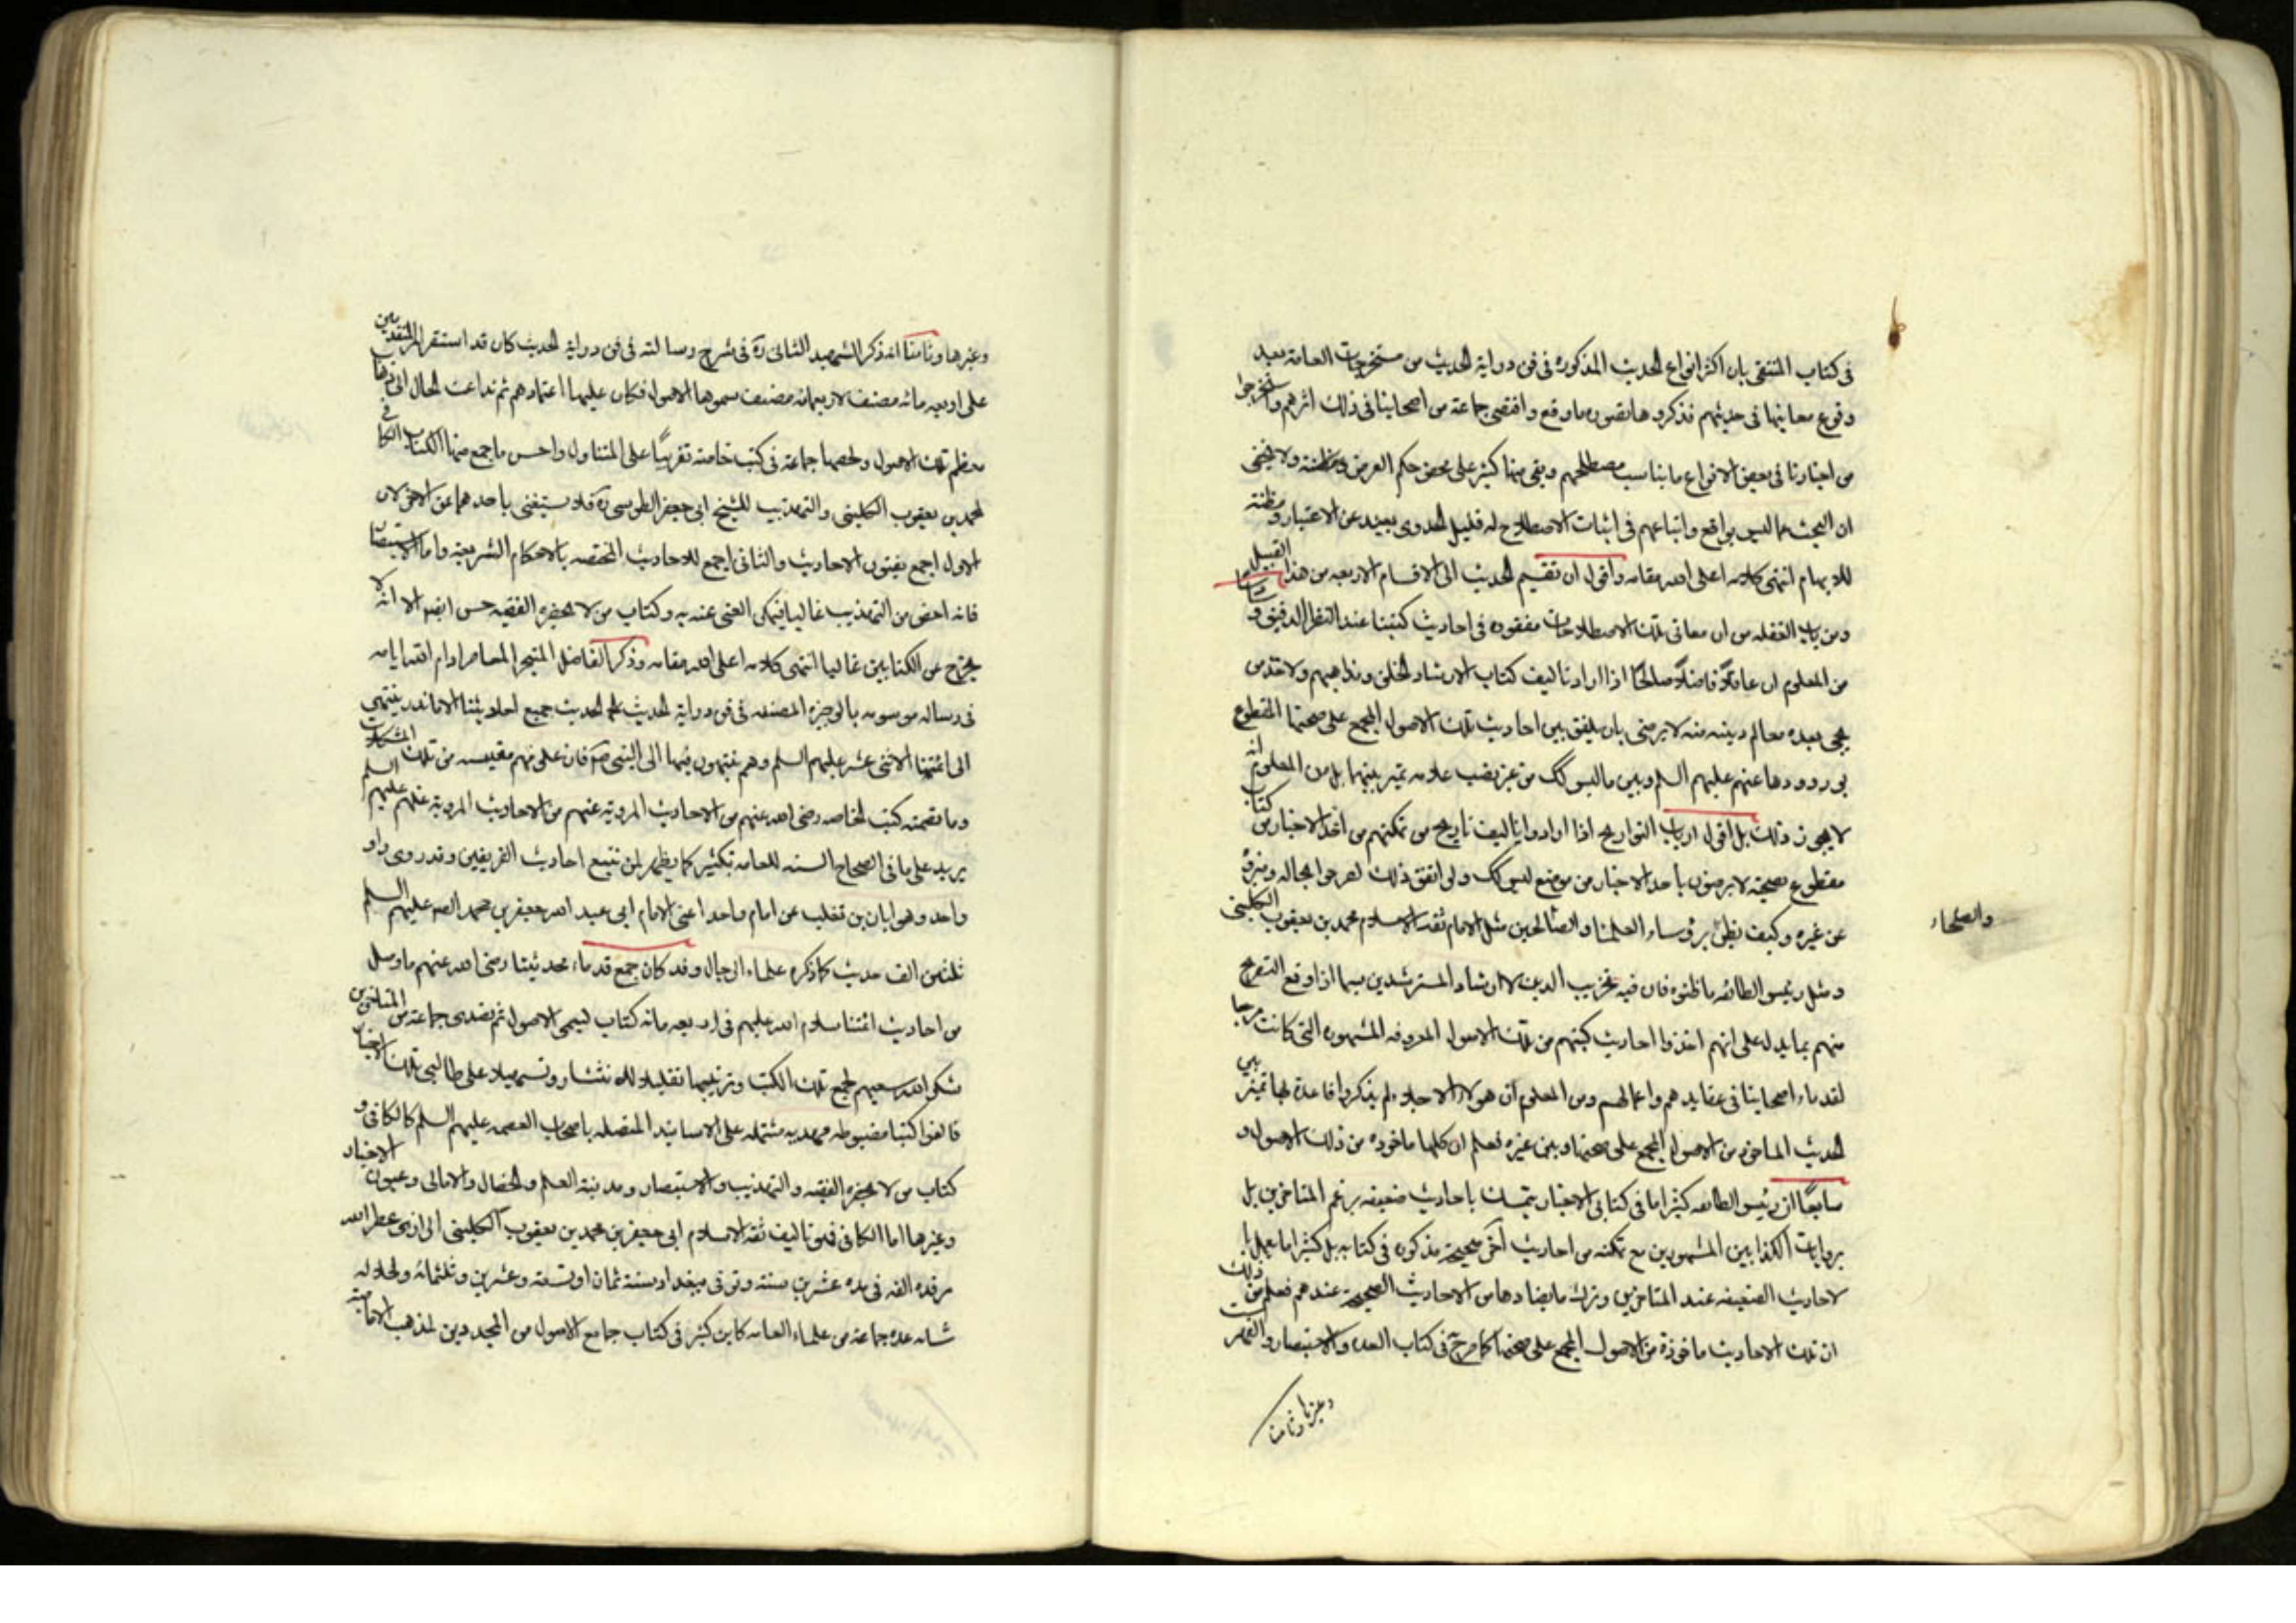 في كتاب المنتقى بان اكثر انواع الحديث المذكورة في فن دراية الحديث من مستخرجات العامة بعد
وقوع معانيها في حديثهم فذكروها بصورة ما وقع واقتفى جماعة من اصحابنا في ذلك اثرهم واستخرجوا
من اخبارنا في بعض الانواع ما يناسب مصطلحهم وبقى منها كثير على محض حكم الفرض ولا يخفى
ان البحث عما ليس بواقع واتباعهم في اثبات الاصطلاح له قليل الجدوى بعيد عن الاعتبار ومظنة
للايهام انتهى كلامه اعلى الله مقامه واقول ان تقسيم الحديث الى الاقسام الاربعه من هذا القبيل
ومن باب الغفله من ان معاني تلك الاصطلاحات مفقوده في احاديث كتبنا عند النظر الدقيق وسادسا
من المعلوم ان عاقلا فاضلا صالحا اذا اراد تاليف كتاب الارشاد الخلق وهدايتهم ولاخذ من
يجئ بعده معالم دينه منه لا يرضى بان يلفق بين احاديث تلك الاصول المجمع على صحتها المقطوع
بورودها عنهم عليهم السلم وبين ما ليس كك من غير نصب علامه تميز بينهما بل من المعلوم انه
لا يجوز ذلك بل اقول ارباب التواريخ اذا ارادوا تاليف تاريخ مع تمكنهم من اخذ الاخبار من كتاب
مقطوع بصحته لا يرضون باخذ الاخبار من موضع ليس كك ولو اتفق ذلك لصرحوا بحاله وميزه
عن غيره وكيف يظن برؤساء العلماء والصالحين مثل الامام ثقة الاسلام محمد بن يعقوب الكليني
والصلحاء
ومثل رئيس الطائفه ما ظنوه فان فيه تخريب الدين لا ارشاد المسترشدين سيما اذا وقع التصريح
منهم بما يدل على انهم اخذوا احاديث كتبهم من تلك الاصول المعروفه المشهوره التي كانت مرجعا
لقدماء اصحابنا في عقايدهم واعمالهم ومن المعلوم ان هولاء الاجلاء لم يذكروا قاعدة بها تميز بين
الحديث الماخوذ من الاصول المجمع على صحتها وبين غيره فعلم ان كلها ماخوذه من تلك الاصول و
سابعا ان رئيس الطائفه كثيرا ما في كتابي الاخبار يتمسك باحاديث ضعيفه بزعم المتاخرين بل
بروايات الكذابين المشهورين مع تمكنه من احاديث اخرى صحيحة مذكوره في كتابه بل كثيرا ما يعمل با
لاحاديث الضعيفه عند المتاخرين وترك ما يضادها من الاحاديث الصحيحة عندهم فعلم من ذلك
ان تلك الاحاديث ماخوذة من الاصول المجمع على صحتها كما صرح في كتاب العده والاستبصار والفهرست
وغيرها وثامنا
وغيرها وثامنا انه ذكر الشهيد الثاني ره في شرح رسالته في فن دراية الحديث كان قد استقر امر المتقدمين
على اربعه مائه مصنف لاربعمائه مصنف سموها الاصول فكان عليها اعتمادهم ثم تداعت الحال الى ذهاب
معظم تلك الاصول ولخصها جماعة في كتب خاصة تقريبا على المتناول واحسن ما جمع منها الكتاب الكافي
لمحمد بن يعقوب الكليني والتهذيب للشيخ ابي جعفر الطوسي ره فلا يستغنى باحدهما عن الاخر لان
الاول اجمع لفنون الاحاديث والثاني اجمع للاحاديث المختصه بالاحكام الشريعية واما الاستبصار
فانه اخص من التهذيب غالبا فيمكن الغنى عنه به وكتاب من لا يحضره الفقيه حسن ايضا الا انه لا
يخرج عن الكتابين غالبا انتهى كلامه اعلى الله مقامه وذكر الفاضل المتبحر المعاصر ادام الله ايامه
في رساله موسومه بالوجيزه المصنفه في فن دراية الحديث علم الحديث جميع احاديثنا الا ما ندر ينتهي
الى ائمتنا الاثنى عشر عليهم السلم وهم ينتهون فيها الى النبي ص فان علومهم مقتبسه من تلك المشكوة
وما تضمنه كتب الخاصه رضى الله عنهم من الاحاديث المروية عنهم عليهم السلم
يزيد على ما في الصحاح السته للعامه بكثير كما يظهر لمن تتبع احاديث الفريقين وقد روى راو
واحد وهو ابان بن تغلب عن امام واحد اعنى الامام ابي عبد الله جعفر بن محمد الصادق عليهم السلم
ثلثين الف حديث كما ذكره علماء الرجال وقد كان جمع قدماء محدثينا رضى الله عنهم ما وصل
من احاديث ائمتنا سلام الله عليهم في اربعه مائه كتاب تسمى الاصول ثم تصدى جماعة من المتاخرين
شكر الله سعيهم لجمع تلك الكتب وترتيبها تقليلا للانتشار وتسهيلا على طالبي تلك الاخبار
فالفوا كتبا مضبوطه مهذبه مشتمله على الاسانيد المتصله باصحاب العصمه عليهم السلم كالكافي و
كتاب من لا يحضره الفقيه والتهذيب والاستبصار ومدينة العلم والخصال والامالي وعيون الاخبار
وغيرها اما الكافي فهو تاليف ثقة الاسلام ابي جعفر بن محمد بن يعقوب الكليني الرازي عطر الله
مرقده الفه في مده عشرين سنة وتوفي ببغداد سنة ثمان او تسعة وعشرين وثلثمائه ولجلاله
شانه عده جماعة من علماء العامه كابن كثير في كتاب جامع الاصول من المجددين لمذهب الامامية